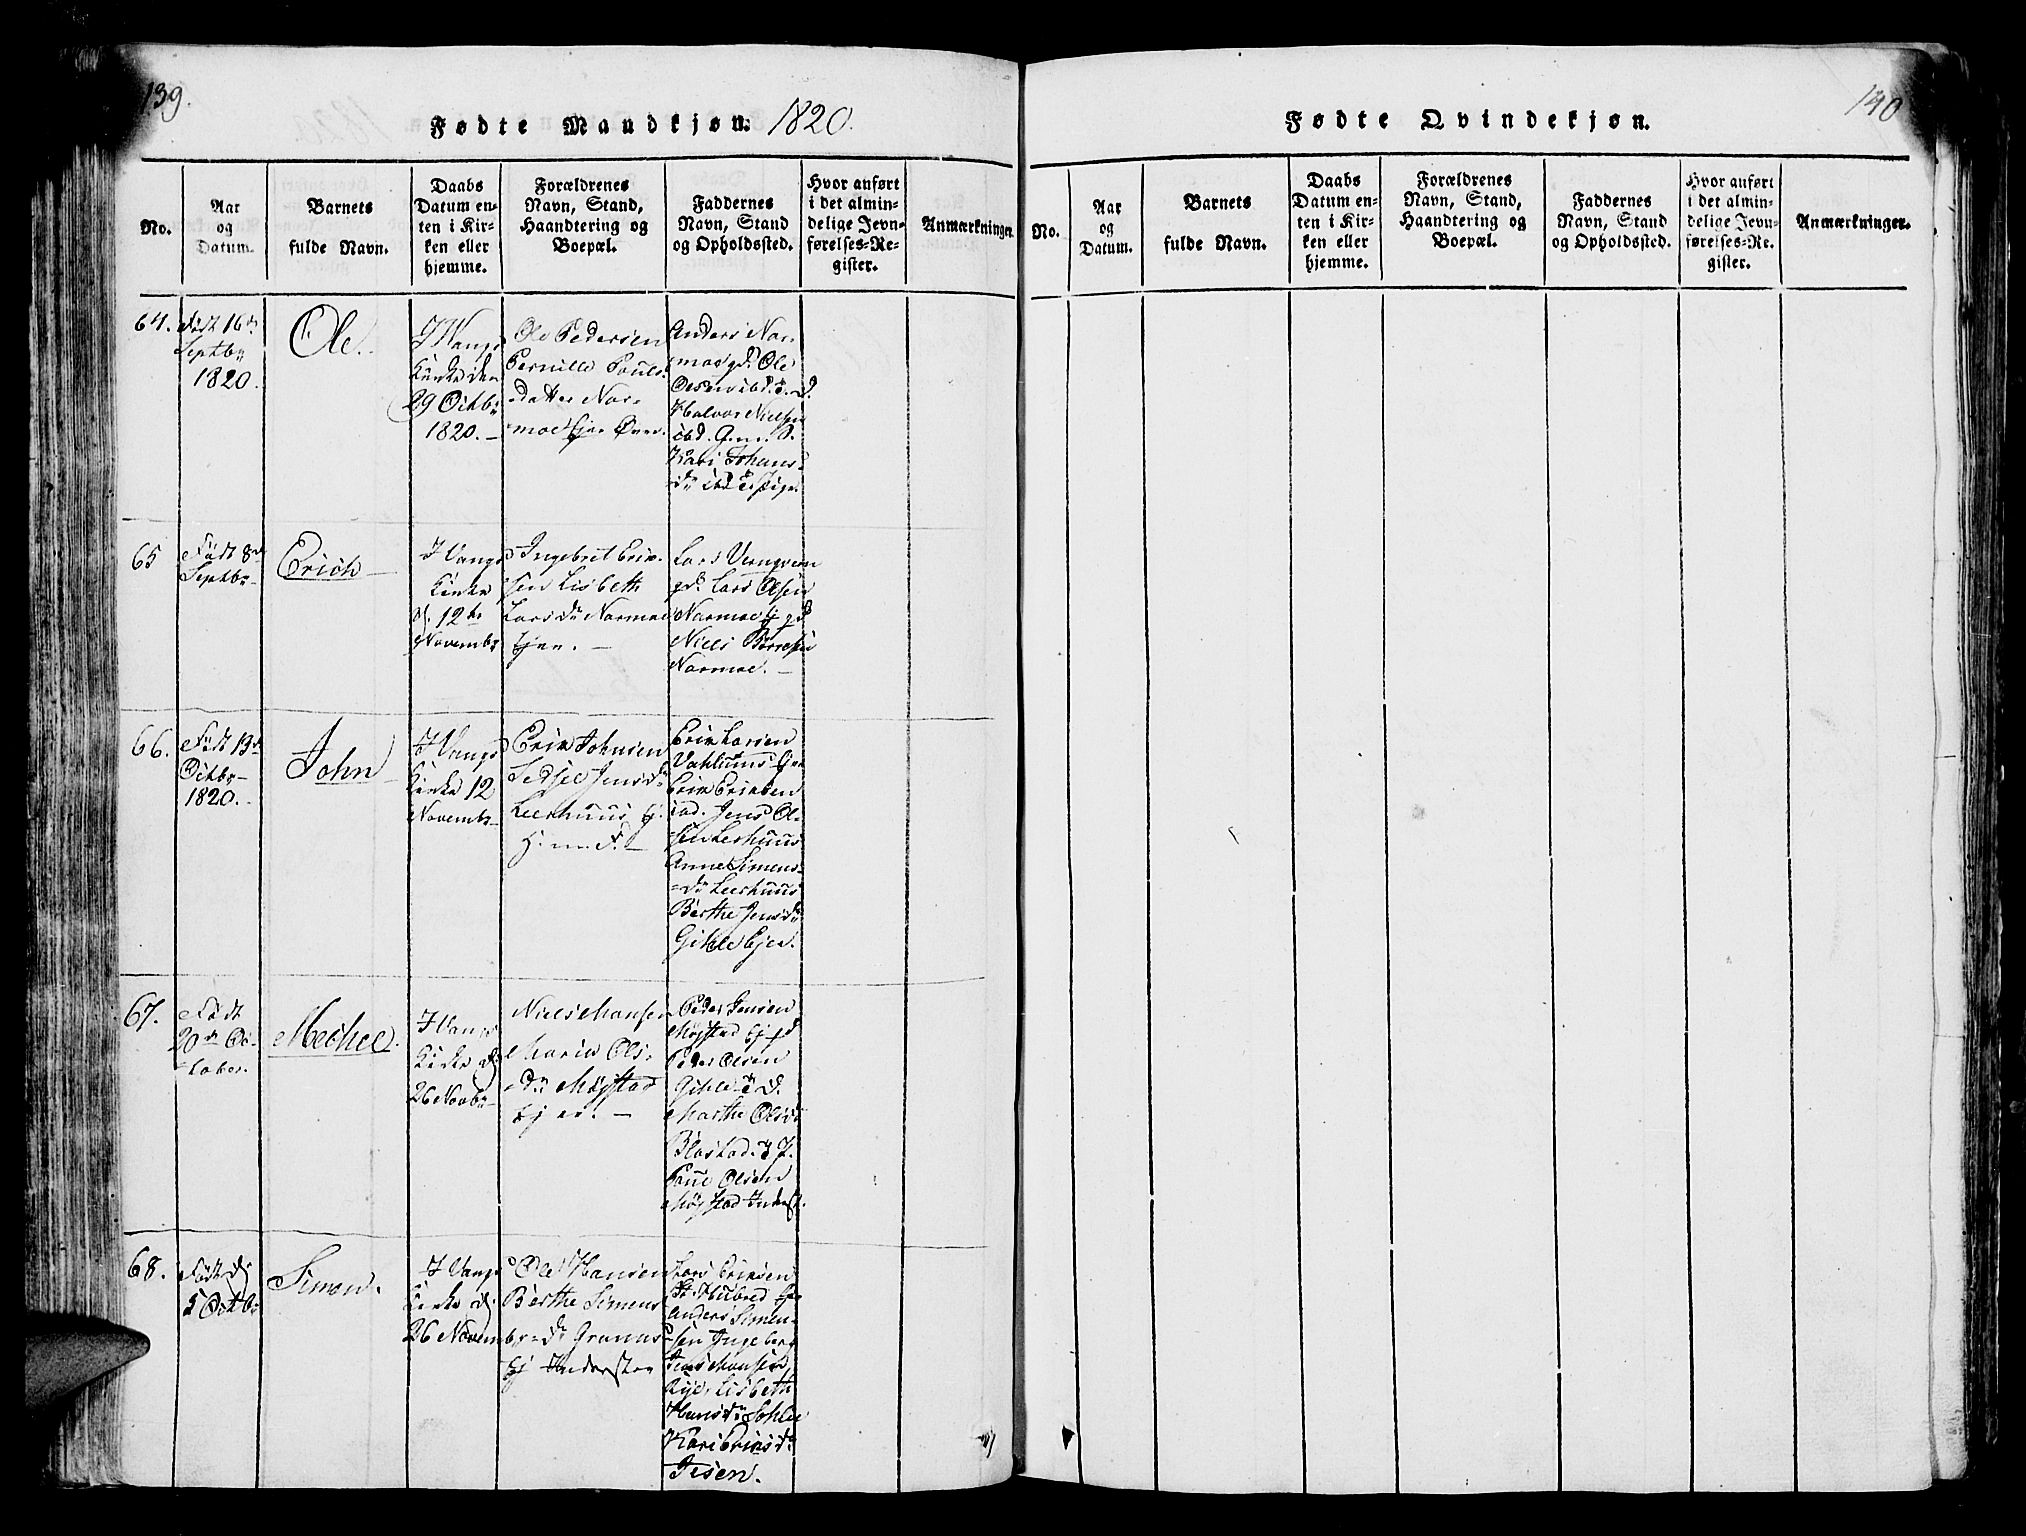 139.
Fødte Mandkjøn. 1820.
No.
Aar
og
Datum.
Barnets
fulde Navn.
Daabs
Datum en-
ten i Kir-
ken eller
hjemme.
Forældrenes
Navn, Stand,
Haandtering og
Boepæl.
Faddernes
Navn, Stand
og Opholdssted.
Hvor anført
i det almin-
delige Jevn-
førelses-Re-
gister.
Anmærkninger.
64.
Født 16de
Septbr
1820.
Ole.
I Wangs
Kirke den
29 Octbr
1820. –
Ole Pedersen
Pernille Pouls-
datter Nor-
moe
Anders Nor-
moe gd. Ole
Olsen ibd.
Halvor Nielsen
ibd. G. m.
Kari Johans-
dr ibd. Pige
65
Født 8de
Septbr
Erich –
I Vangs
Kirke
d. 12te
Novembr
Ingebret Erik-
sen Lisbeth
Larsdr Normoe
Ejer. –
Lars
gd. Lars Olsen
Normoe Ej gd
Niels
Normoe. –
66.
Født 13de
Octbr
1820.
John
I Vangs
Kirke 12
Novembr
Erik Johnsen
Sidsel Jensdr
Leerhuus Ej.
H. m. F. –
Erik Larsen
Vahlums
Erik Eriksen
ibd. Jens Ol-
sen Lerhuus
Anne Simens-
dr Leerhuus
Berthe Jensdr
Gihle Ejer.
67.
Født
20de Oc-
tober.
Mechel.
I Vangs
Kirke d.
26 Novbr
Niels Hansen
Maria Ols-
dr Møystad
Ejer. –
Peder Jensen
Møystad Ej
Peder Olsen
Gihle
Marthe Olsdr
Blæstad.
Poul Olsen
Møystad Inders.
68.
Født d.
5 Octbr
Simen.
I Vangs
Kirke d.
26 Novembr
Ole Hansen
Berthe Simens
dr Grønaas
Ej Inderster
Lars Eriksen
Anders Simen-
sen Ingeberg
Jens Hansen
Lisbeth
Hansdr Sohlie
Kari Eriksdr
Tesen.
140
Fødte Qvindekjøn.
No.
Aar
og
Datum.
Barnets
fulde Navn.
Daabs
Datum en-
ten i Kir-
ken eller
hjemme.
Forældrenes
Navn, Stand,
Haandtering og
Boepæl.
Faddernes
Navn, Stand
og Opholdssted.
Hvor anført
i det almin-
delige Jevn-
førelses-Re-
gister.
Anmærkninger.